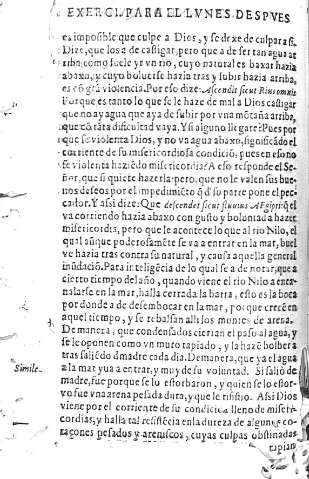 EXERCI. PARA EL LVNES DESPVES
es imposible que culpe a Dios, y se dexe de culpar a si.
Dize, que los a de castigar, pero que a de ser tan agua ar
riba, como suele yr vn rio, cuyo natural es baxar hazia
abaxo, y cuyo boluerse hazia tras y subir hazia arriba,
es cō grā violencia. Por eso dize: Ascendit sicut Riuus omnis
Porque es tanto lo que se le haze de mal a Dios castigar
que no ay agua que aya de subir por vna mōtaña arriba,
que cō tāta dificultad vaya. Y si alguno llegare: Pues por
que se violenta Dios, y no va agua abaxo, significādo el
corriente de su misericordiosa condiciō, pues en eso no
se violenta haziēdo misericordia? A eso responde el Se-
ñor, que si quiete hazerla; pero que no le valen sus bue-
nos deseos por el impedimēto q̄ d su parte pone el pec-
cador. Y assi dize: Que descendet sicut fluuius AEgipti: q̄ el
va corriendo hazia abaxo con gusto y boluntad a hazer
misericordia, pero que le acontece lo que al rio Nilo, el
qual aūque poderosamēte se va a entrar en la mar, buel
ve hazia tras contra su natural, y causa aquella general
inūdaciō. Para inteligēcia de lo qual se a de notar, que a
cierto tiempo del año, quando viene el rio Nilo a enca-
nalarse en la mar, halla cerrada la barra, esto es la boca
por donde a de desembocar en la mar, por que crece en
aquel tiempo, y se rebalsan alli los montes de arena.
De manera, que condensados cierran el paso al agua, y
se le oponen como vn muro tapiado, y la hazē bolber a
tras saliēdo d madre cada dia. De manera, que ya el agua
Simile. a la mar yua a entrar, y muy de su voluntad. Si salio de
madre, fue porque se lo estorbaron, y quien se lo estor-
vo fue vna arena pesada dura, y que le resistio. Assi Dios
viene por el corriente de su condiciō lleno de miseri-
cordias; y halla tal resistēcia en la dureza de algunos co-
raçones pesados y areniscos, cuyas culpas obstinadas
tapian